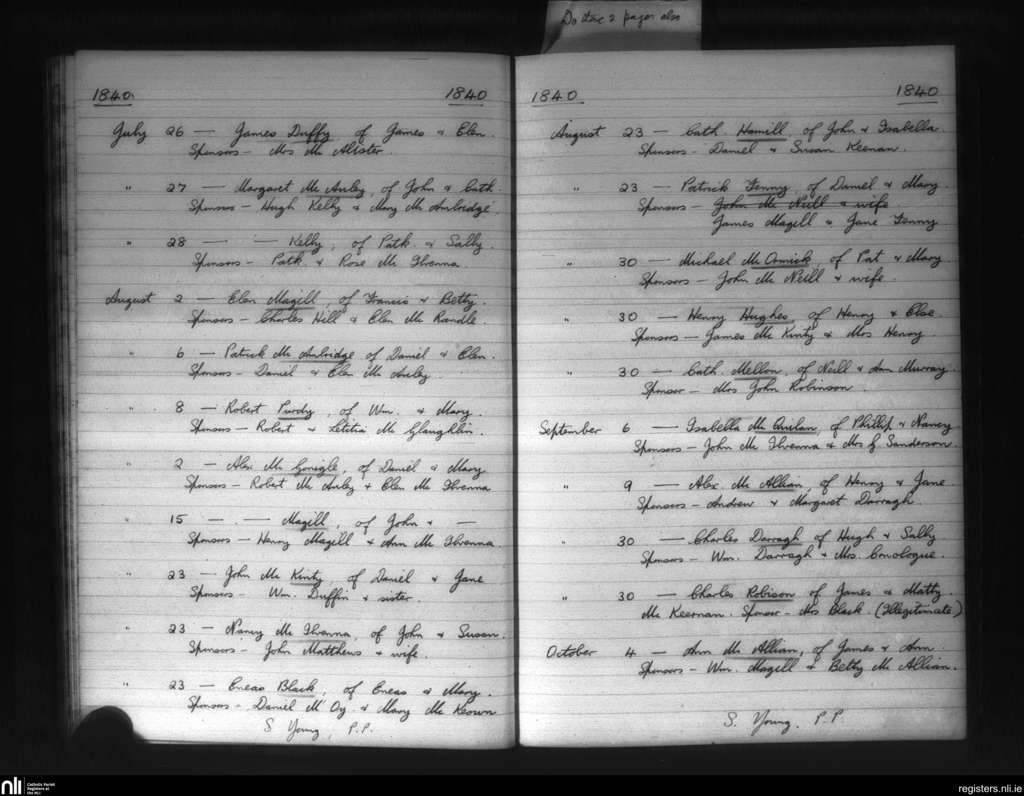 Do these 2 pages also
1840. 1840
July 26 — James Duffy, of James & Elen.
Sponsors — Mrs Mc Alister.
" 27 — Margaret Mc Auley, of John & Cath.
Sponsors — Hugh Kelly & Mary Mc Ambridge.
" 28 — — Kelly, of Patk. & Sally.
Sponsors — Patk & Rose Mc Ilvenna.
August 2 — Elen Magill, of Francis & Betty.
Sponsors — Charles Hill & Elen Mc Randle.
" 6 — Patrick Mc Ambridge of Daniel & Elen.
Sponsors — Daniel & Elen Mc Auley.
" 8 — Robert Purdy, of Wm. & Mary.
Sponsors — Robert & Letitia Mc Glaughlin.
" 2 — Alex Mc Gonigle, of Daniel & Mary
Sponsors — Robert Mc Auley & Elen Mc Ilvenna
" 15 — — Magill, of John & —
Sponsors — Henry Magill & Ann Mc Ilvenna.
" 23 — John Mc Kinty, of Daniel & Jane
Sponsors — Wm. Duffin & sister.
" 23 — Nancy Mc Ilvenna, of John & Susan.
Sponsors — John Matthews & wife.
" 23 — Eneas Black, of Eneas & Mary.
Sponsors — Daniel Mc Oy & Mary Mc Keown
S Young, P.P.
1840 1840
August 23 — Cath. Hamill, of John & Isabella
Sponsors — Daniel & Susan Keenan.
" 23 — Patrick Fenny, of Daniel & Mary
Sponsors — John Mc Neill & wife.
James Magill & Jane Fenny
" 30 — Michael Mc Ormick, of Pat & Mary
Sponsors — John Mc Neill & wife.
" 30 — Henry Hughes, of Henry & Else.
Sponsors — James Mc Kinty & Mrs Henry
" 30 — Cath. Mellon, of Neill & Ann Murray.
Sponsor — Mrs John Robinson
September 6 — Isabella Mc Quilan, of Phillip & Nancy
Sponsors — John Mc Ilvenna & Mrs G Sanderson.
" 9 — Alex. Mc Allian, of Henry & Jane.
Sponsors — Andrew & Margaret Darragh.
" 30 — Charles Darragh of Hugh & Sally
Sponsors — Wm. Darragh & Mrs. Conologue.
" 30 — Charles Robison of James & Matty
Mc Keernan. Sponsor — Mrs Black. (Illegitimate)
October 4 — Ann Mc Allian, of James & Ann.
Sponsors — Wm. Magill & Betty Mc Allian.
S. Young. P.P.
nli Catholic Parish Registers at the NLI
registers.nli.ie